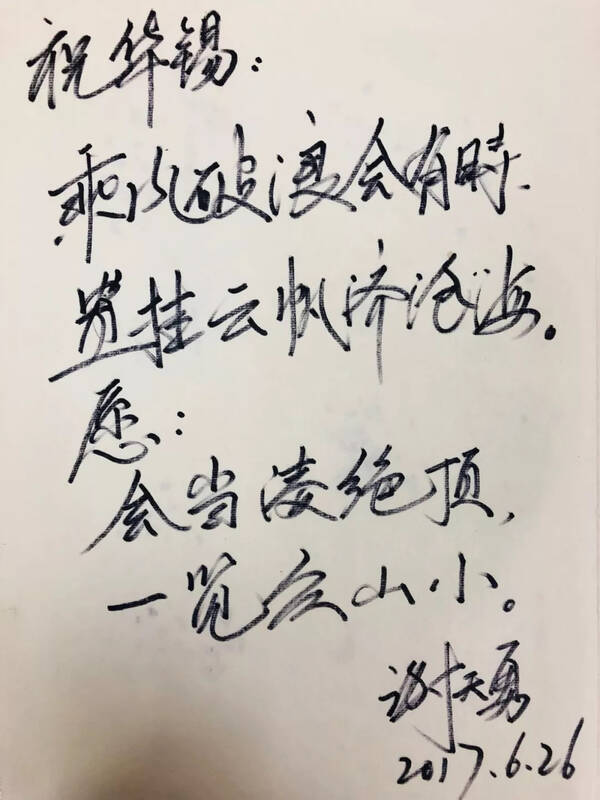 祝华锡：
乘风破浪会有時、
直挂云帆济沧海。
愿：
会当凌绝顶，
一览众山小。
谢天勇
2017.6.26